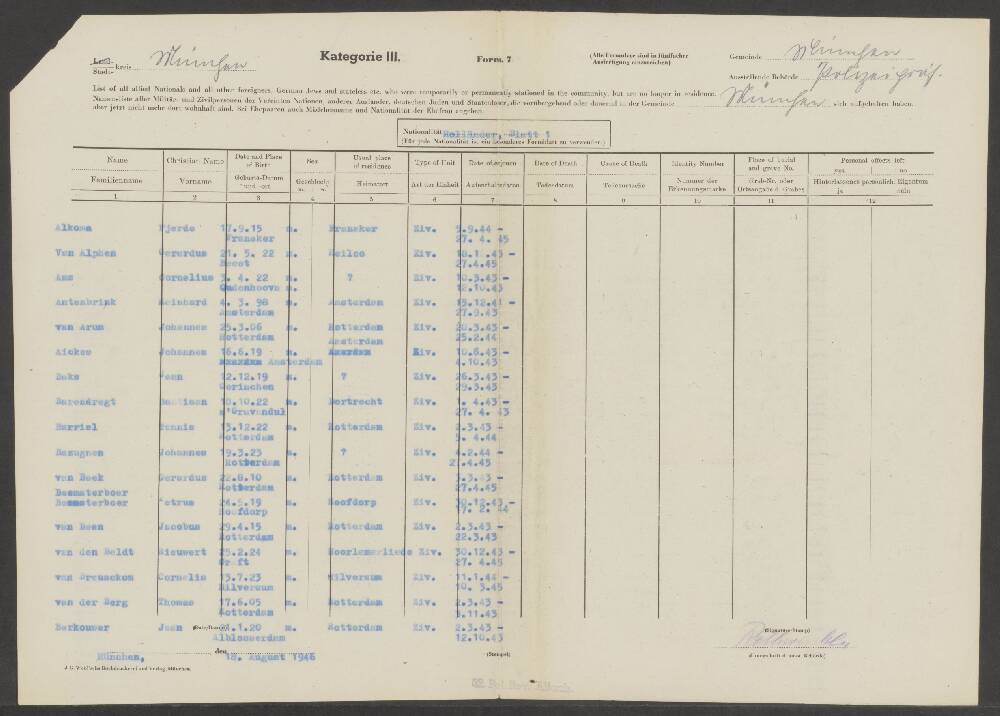 Stadt- kreis München
Kategorie III.
Form. 7
(Alle Formulare sind in fünffacher Ausfertigung einzureichen)
Gemeinde München
Ausstellende Behörde Polizeipräs. München
List of all allied Nationals and all other foreigners, German Jews and stateless etc. who were temporarily or permanently stationed in the community, but are no longer in residence.
Namensliste aller Militär- und Zivilpersonen der Vereinten Nationen, anderer Ausländer, deutschen Juden und Staatenloser, die vorübergehend oder dauernd in der Gemeinde sich aufgehalten haben,
aber jetzt nicht mehr dort wohnhaft sind. Bei Ehepaaren auch Mädchenname und Nationalität der Ehefrau angeben.
Nationalität Holländer, Blatt 1
(Für jede Nationalität ist ein besonderes Formblatt zu verwenden)
Name Christian Name Date and Place of Birth Sex Usual place of residence Type of Unit Date of sejourn Date of Death Cause of Death Identity Number Place of burial and grave No. Personal effects left yes no
Familienname Vorname Geburts-Datum und -ort Geschlecht m. w. Heimatort Art der Einheit Aufenthaltsdaten Todesdatum Todesursache Nummer der Erkennungsmarke Grab-Nr. oder Ortsangabe d. Grabes Hinterlassenes persönlich. Eigentum ja nein
1 2 3 4 5 6 7 8 9 10 11 12
Alkema Tjerde 17.9.15 m. Franeker Ziv. 5.9.44 -
Franeker 27. 4. 45
Van Alphen Gerardus 21. 5. 22 m. Heiloo Ziv. -
27.4.45
Ams Cornelius 3. 4. 22 m. ? Ziv. 10.3.43 -
Oudenhoovn m. 12.10.43
Antenbrink Reinhard 4. 3. 98 m. Amsterdam Ziv. 15.12.41 -
Amsterdam 27.9.43
van Arum Johannes 25.3.06 m. Rotterdam Ziv. 20.3.43 -
Rotterdam Amsterdam 25.2.44
Aickes Johannes 16.6.19 m. Ziv. 10.6.43 -
Amsterdam 4.10.43
Baks 12.12.19 m. ? Ziv. 26.3.43 -
Gorinchen 29.3.43
Barendregt Bastiaan 10.10.22 m. Dortrecht Ziv. 1. 4.43 -
s'Gravendul 27. 4. 43
Barriel Dennis 13.12.22 m. Rotterdam Ziv. 2.3.43 -
Rotterdam 5. 4.44
Bazugnen Johannes 19.3.23 m. ? Ziv. 4.2.44 -
Rotterdam .4.45
van Beek Gerardus 22.8.10 m. Rotterdam Ziv. 3.3.43 -
Rotterdam 27.4.45
Beemsterboer
Beemsterboer Petrus 24.5.19 m. Hoofdorp Ziv. 30.12.43 -
Hoofdorp 17. 2. 44
van Been Jacobus 29.4.15 m. Rotterdam Ziv. 2.3.43 -
Rotterdam 22.3.43
van den Beldt Nieuwert 25.2.24 m. Haarlemerliede Ziv. 30.12.43 -
Graft 27. 4.45
van Breusekom Cornelis 13.7.23 m. Hilversum Ziv. 11.1.44 -
Hilversum 10. 3.45
van der Berg Thomas 17.6.05 m. Rotterdam Ziv. 2.3.43 -
Rotterdam 5.11.43
Berkouwer Jean (Date/Datum) .1.20 m. Rotterdam Ziv. 2.3.43 -
Alblasserdam 12.10.43
(Signature-Stamp)
München, den 18. August 1946
(Stempel)
(Unterschrift d. ausst. Behörde)
J. G. Weiß'sche Buchdruckerei und Verlag, München